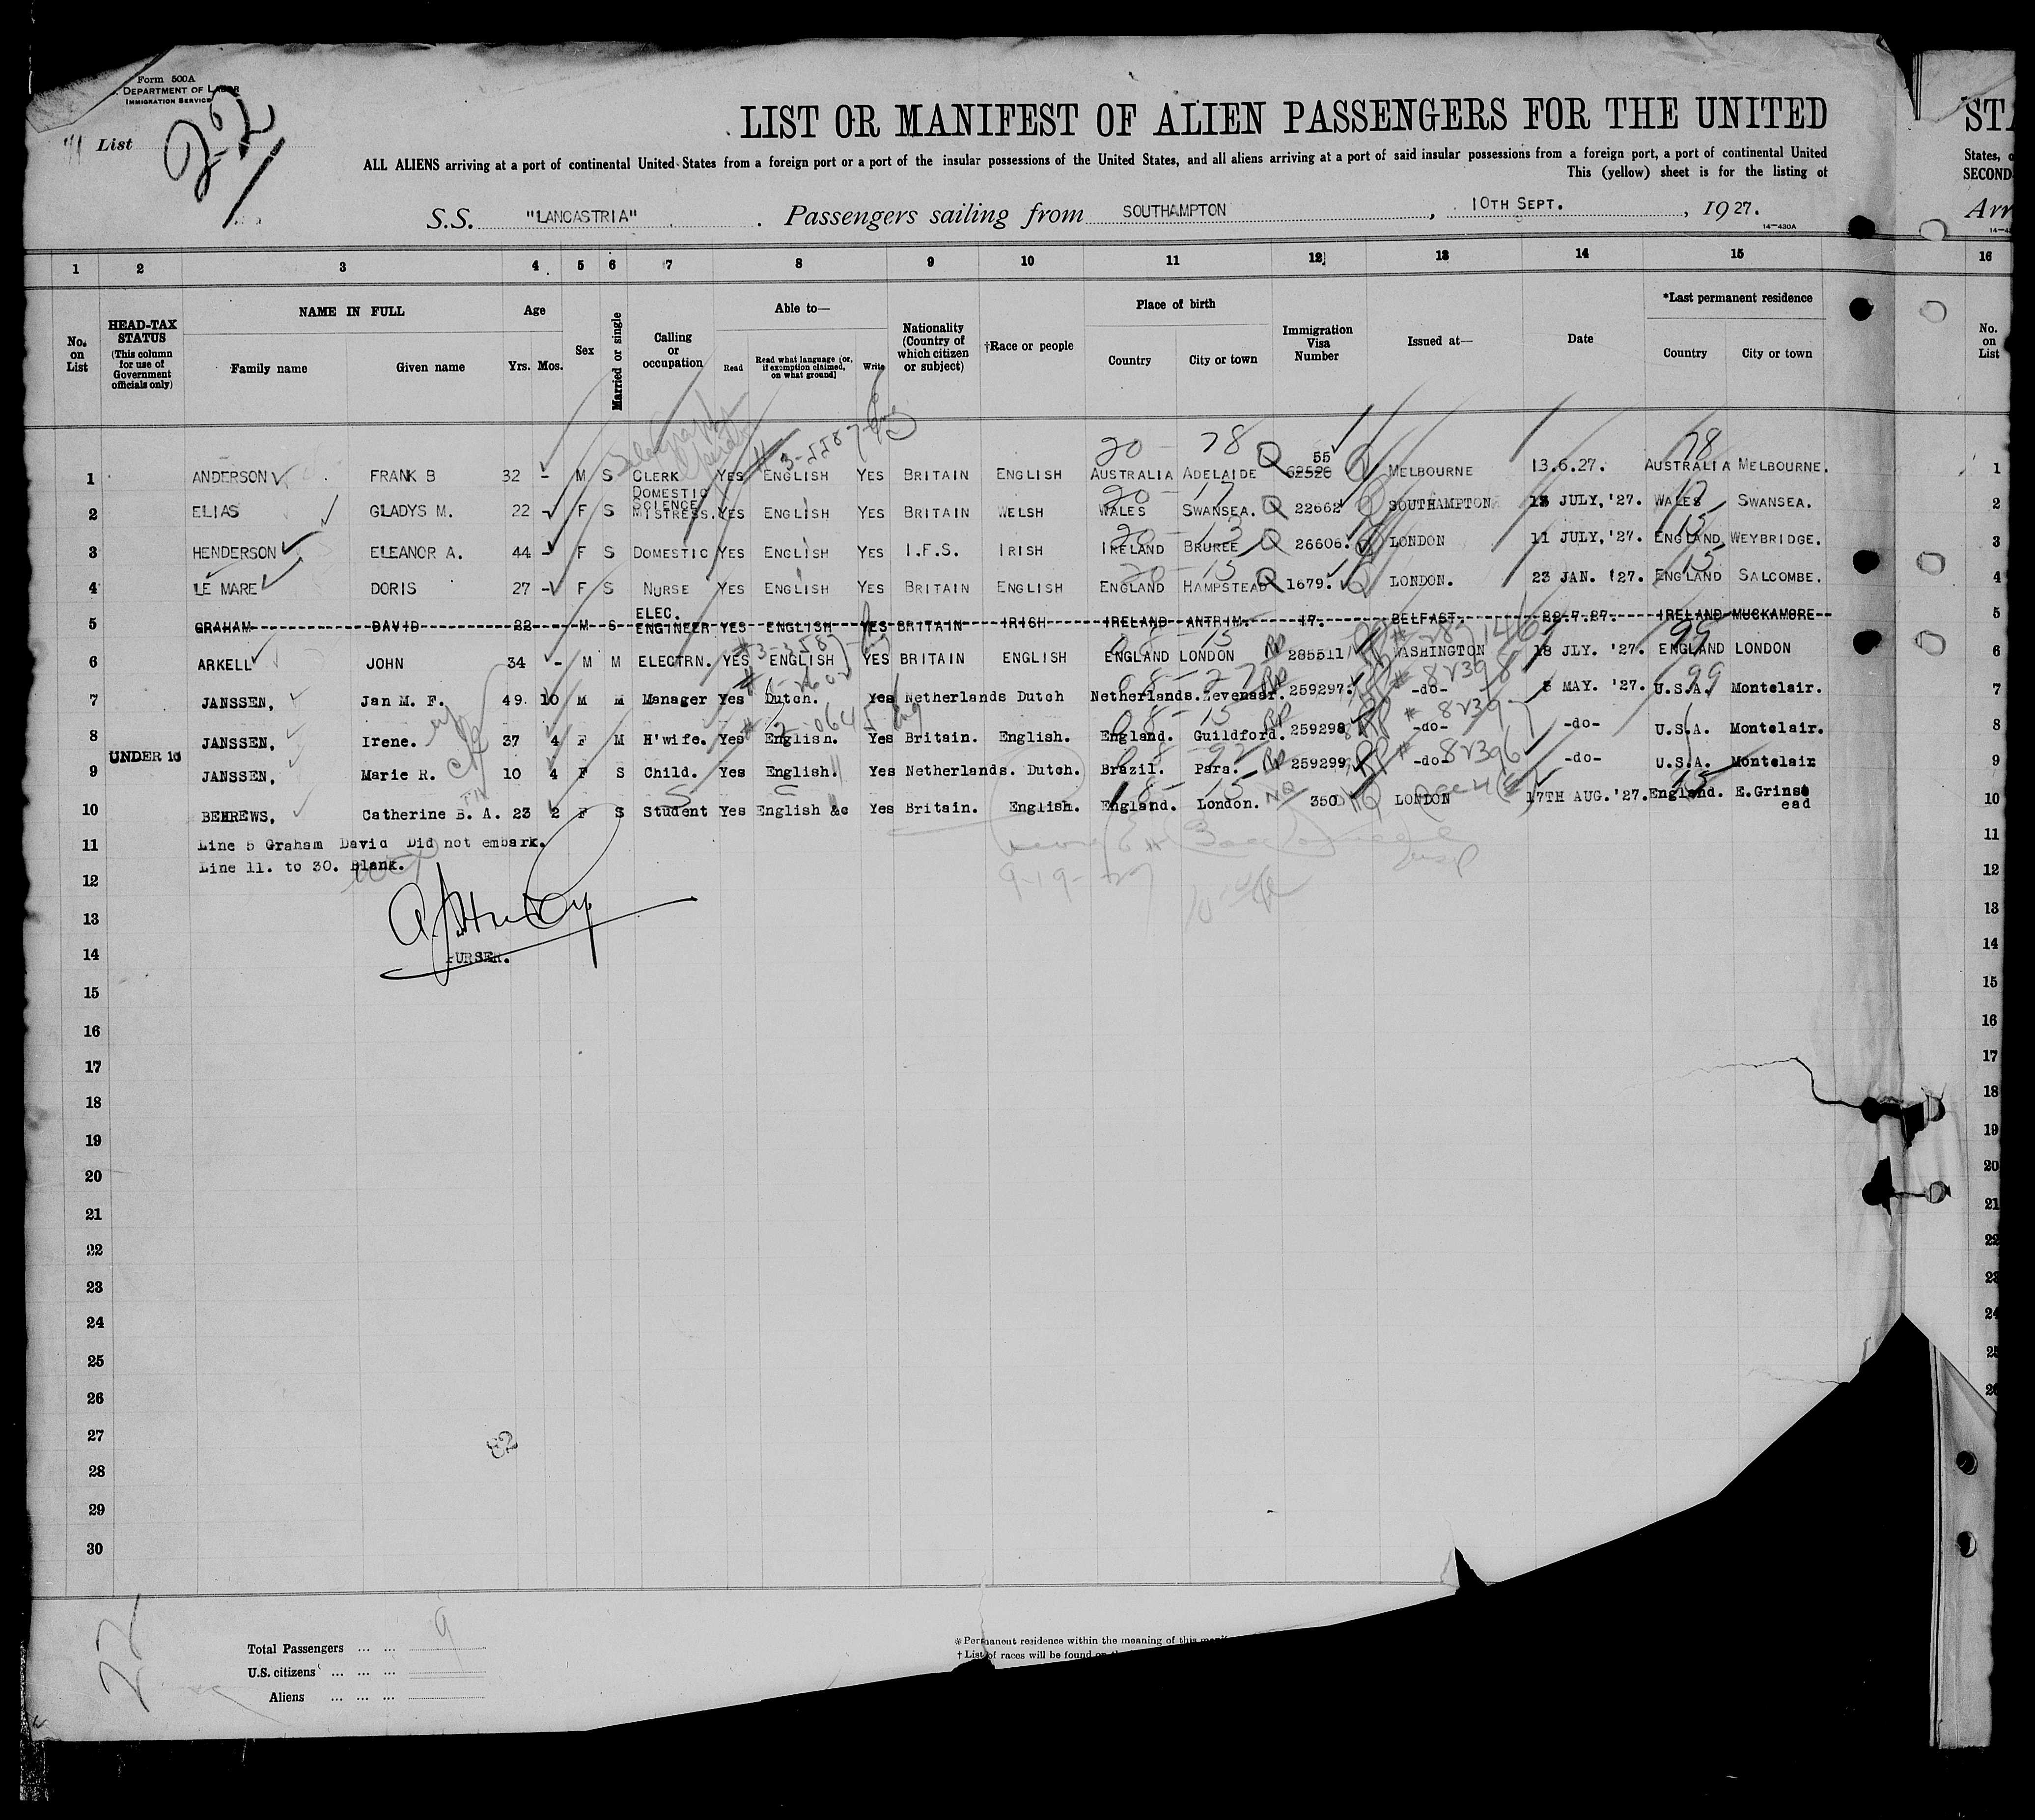 Form 500A
DEPARTMENT OF LABOR
IMMIGRATION SERVICE
List 22
LIST OR MANIFEST OF ALIEN PASSENGERS FOR THE UNITED
ALL ALIENS arriving at a port of continental United States from a foreign port or a port of the insular possessions of the United States, and all aliens arriving at a port of said insular possessions from a foreign port, a port of continental United
This (yellow) sheet is for the listing of
S.S. "LANCASTRIA" . Passengers sailing from SOUTHAMPTON , 10TH SEPT. , 1927.
14—430A
STA
States, o
SECOND-
Arr
1 2 3 4 5 6 7 8 9 10 11 12 13 14 15 16
No. on List
HEAD-TAX STATUS (This column for use of Government officials only)
NAME IN FULL
Family name Given name
Age
Yrs. Mos.
Sex
Married or single
Calling or occupation
Able to—
Read Read what language (or, if exemption claimed, on what ground) Write
Nationality (Country of which citizen or subject)
†Race or people
Place of birth
Country City or town
Immigration Visa Number
Issued at—
Date
*Last permanent residence
Country City or town
No. on List
20 - 78 78
1 ANDERSON FRANK B 32 - M S CLERK YES ENGLISH YES BRITAIN ENGLISH AUSTRALIA ADELAIDE Q 55 62520 MELBOURNE 13.6.27. AUSTRALIA MELBOURNE. 1
20 - 17 17
2 ELIAS GLADYS M. 22 - F S DOMESTIC SCIENCE MISTRESS. YES ENGLISH YES BRITAIN WELSH WALES SWANSEA. Q 22662 SOUTHAMPTON 13 JULY, '27. WALES SWANSEA. 2
20 - 13 15
3 HENDERSON ELEANOR A. 44 - F S DOMESTIC YES ENGLISH YES I.F.S. IRISH IRELAND BRUREE Q 26606. LONDON 11 JULY, '27. ENGLAND WEYBRIDGE. 3
20 - 15 15
4 LE MARE DORIS 27 - F S NURSE YES ENGLISH YES BRITAIN ENGLISH ENGLAND HAMPSTEAD Q 1679. LONDON. 23 JAN. '27. ENGLAND SALCOMBE. 4
5 GRAHAM DAVID 22 - M S ELEC. ENGINEER YES ENGLISH YES BRITAIN IRISH IRELAND ANTRIM 17. BELFAST. 22.7.27. IRELAND MUCKAMORE 5
08 - 15 99
6 ARKELL JOHN 34 - M M ELECTRN. YES ENGLISH YES BRITAIN ENGLISH ENGLAND LONDON RP 285511 WASHINGTON 18 JLY. '27. ENGLAND LONDON 6
08 - 27 RP # 82398 99
7 JANSSEN, Jan M. F. 49 10 M M Manager Yes Dutch. Yes Netherlands Dutch Netherlands. Zevenaar. 259297. -do- 5 MAY. '27. U.S.A. Montclair. 7
08 - 15 RP # 82397
8 JANSSEN, Irene. 37 4 F M H'wife. Yes English. Yes Britain. English. England. Guildford. 259298 -do- -do- U.S.A. Montclair. 8
UNDER 16
RP # 82396
9 JANSSEN, Marie R. 10 4 F S Child. Yes English. Yes Netherlands. Dutch. Brazil. Para. 259299 -do- -do- U.S.A. Montclair 9
08 - 15 NQ 15
10 BEHREWS, Catherine B. A. 23 2 F S Student Yes English &c Yes Britain. English. England. London. 350 LONDON 17TH AUG.'27. England. E.Grinstead 10
11 Line 5 Graham David Did not embark. 11
Line 11. to 30. Blank.
12 12
9-19-27
13 13
14 PURSER. 14
15 15
16 16
17 17
18 18
19 19
20 20
21 21
22 22
23 23
24 24
25 25
26 26
27
82
28
29
30
22
Total Passengers ... ... 9
U.S. citizens ... ... ...
Aliens ... ... ...
*Permanent residence within the meaning of this
† List of races will be found on